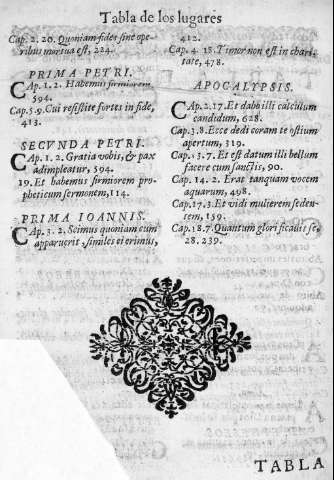 Tabla de los lugares
Cap. 2. 20. Quoniam fides sine ope-
ribus mortua est, 224.
PRIMA PETRI.
CAp. 1. 2. Habemus firmiorem,
594.
Cap. 5. 9. Cui resistite fortes in fide,
413.
SECVNDA PETRI.
CAp. 1. 2. Gratia vobis, & pax
adimpleatur, 594.
19. Et habemus firmiorem pro-
pheticum sermonem, 114.
PRIMA IOANNIS.
CAp. 3. 2. Scimus quoniam cum
apparuerit, similes ei erimus,
412.
Cap. 4. 18. Timor non est in chari-
tate, 478.
APOCALYPSIS.
CAp. 2. 17. Et dabo illi calculum
candidum, 628.
Cap. 3. 8. Ecce dedi coram te ostium
apertum, 319.
Cap. 13. 7. Et est datum illi bellum
facere cum sanctis, 90.
Cap. 14. 2. Erat tanquam vocem
aquarum, 498.
Cap. 17. 3. Et vidi mulierem seden-
tem, 159.
Cap. 18. 7. Quantum glorificauit se,
28. 239.
TABLA